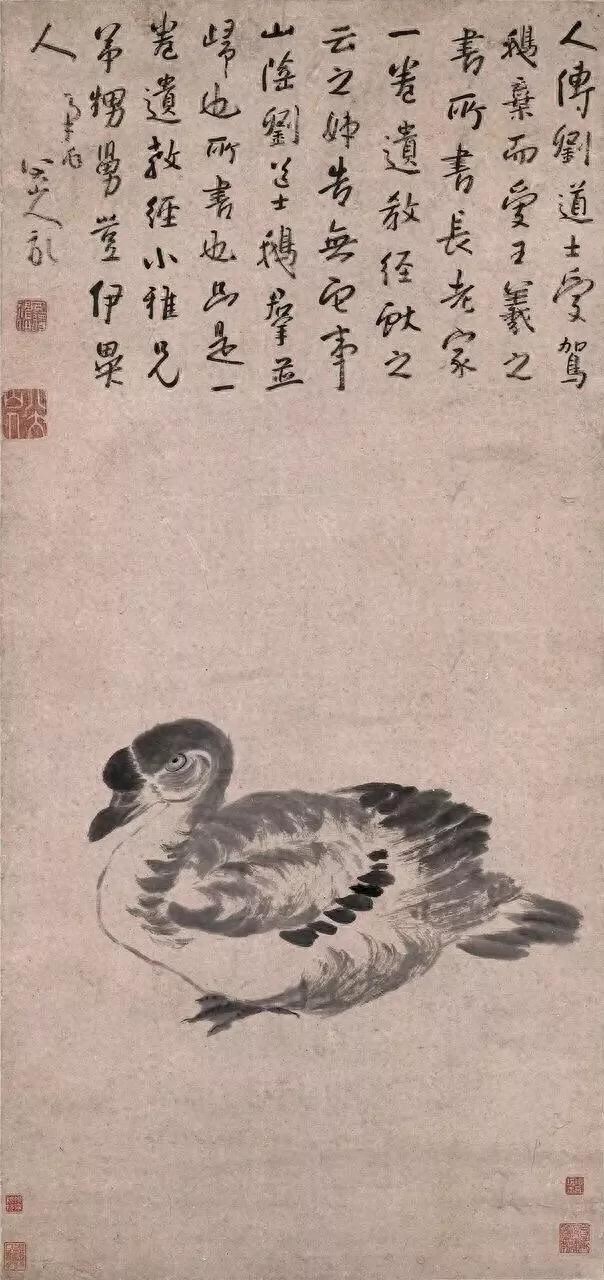 人傳劉道士愛駕
鵝棄而愛王羲之
書所書長老家
一卷遺教經獻之
云之姊告無它事
山陰劉道士鵝羣並
歸也所書也只是一
卷遺教經小雅兄
弟甥舅豈伊異
人
八大山人記